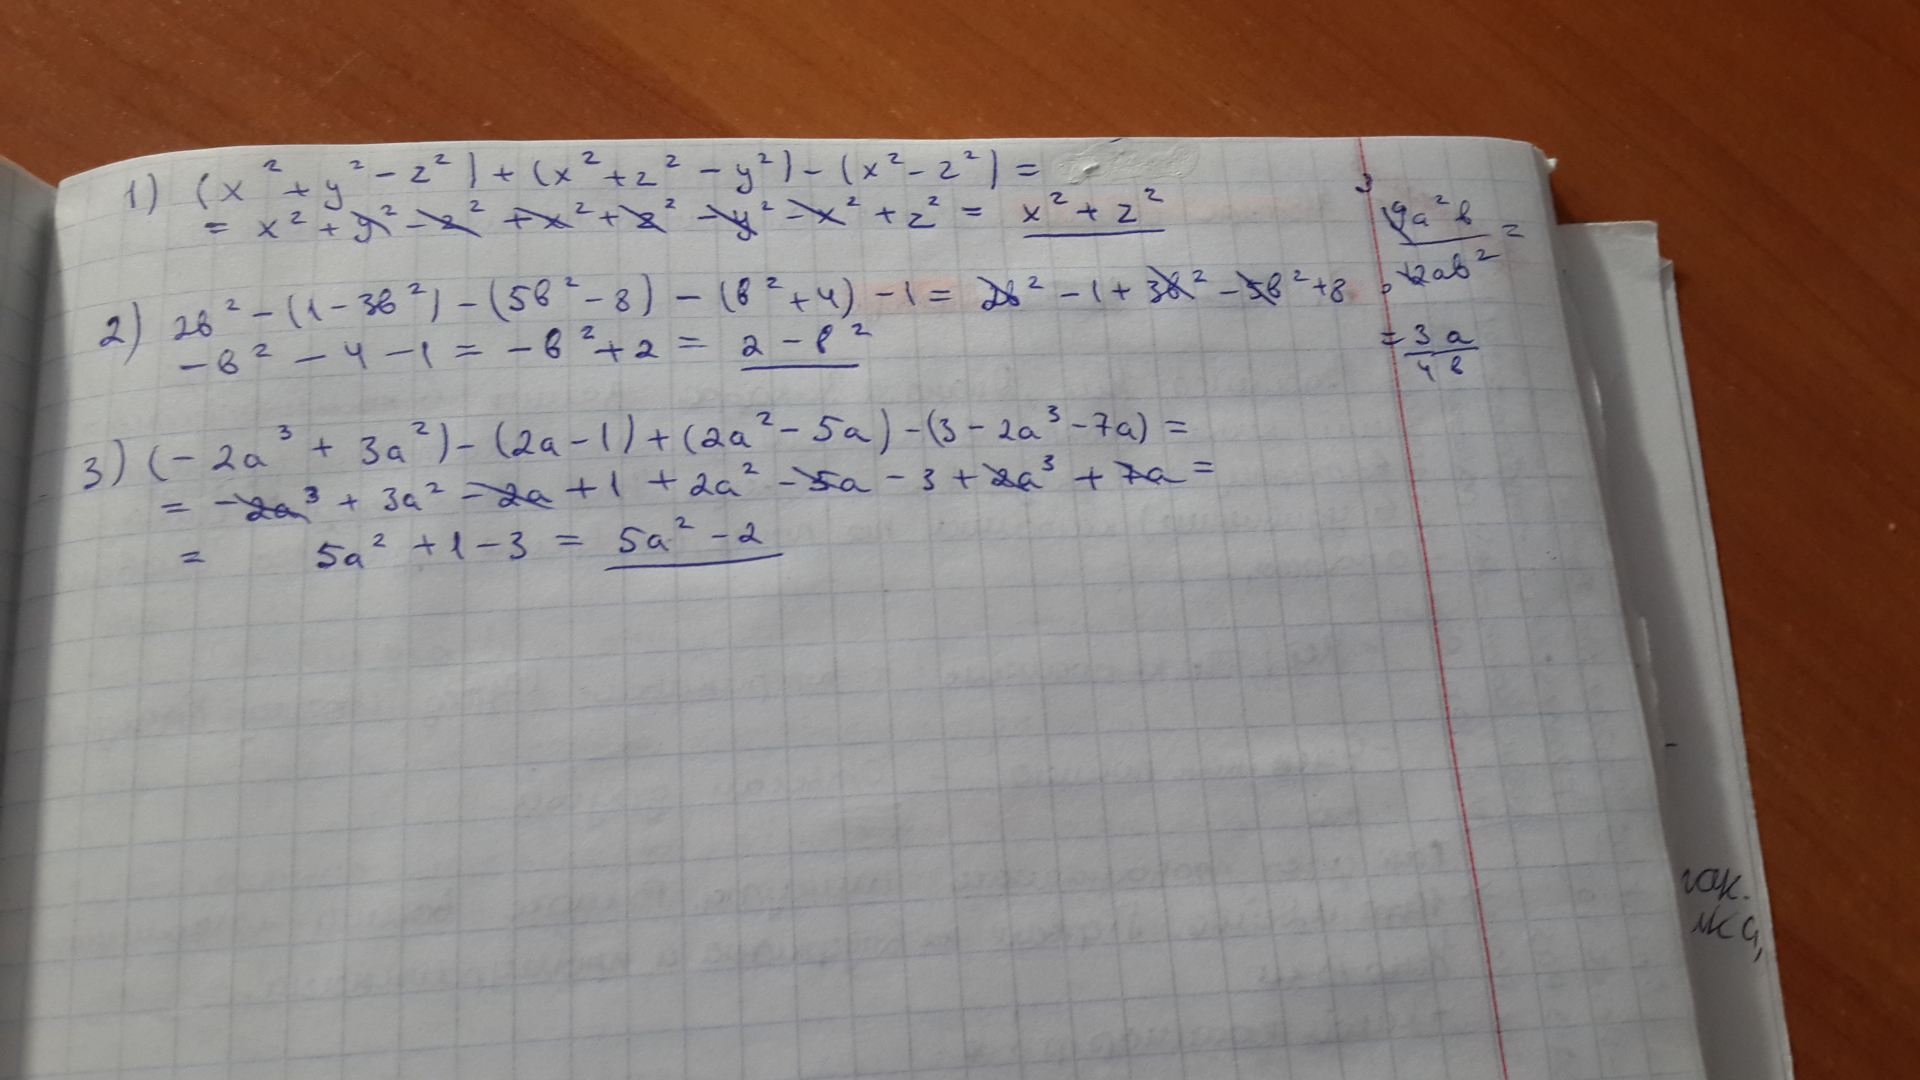 1) (x² + y² - z²) + (x² + z² - y²) - (x² - z²) =
= x² + y² - z² + x² + z² - y² - x² + z² = x² + z²
2) 2в² - (1 - 3в²) - (5в² - 8) - (в² + 4) - 1 = 2в² - 1 + 3в² - 5в² + 8
- в² - 4 - 1 = - в² + 2 = 2 - в²
3) (- 2a³ + 3a²) - (2a - 1) + (2a² - 5a) - (3 - 2a³ - 7a) =
= - 2a³ + 3a² - 2a + 1 + 2a² - 5a - 3 + 2a³ + 7a =
= 5a² + 1 - 3 = 5a² - 2
3
9a²в =
12aв²
= 3a
4в
гок.